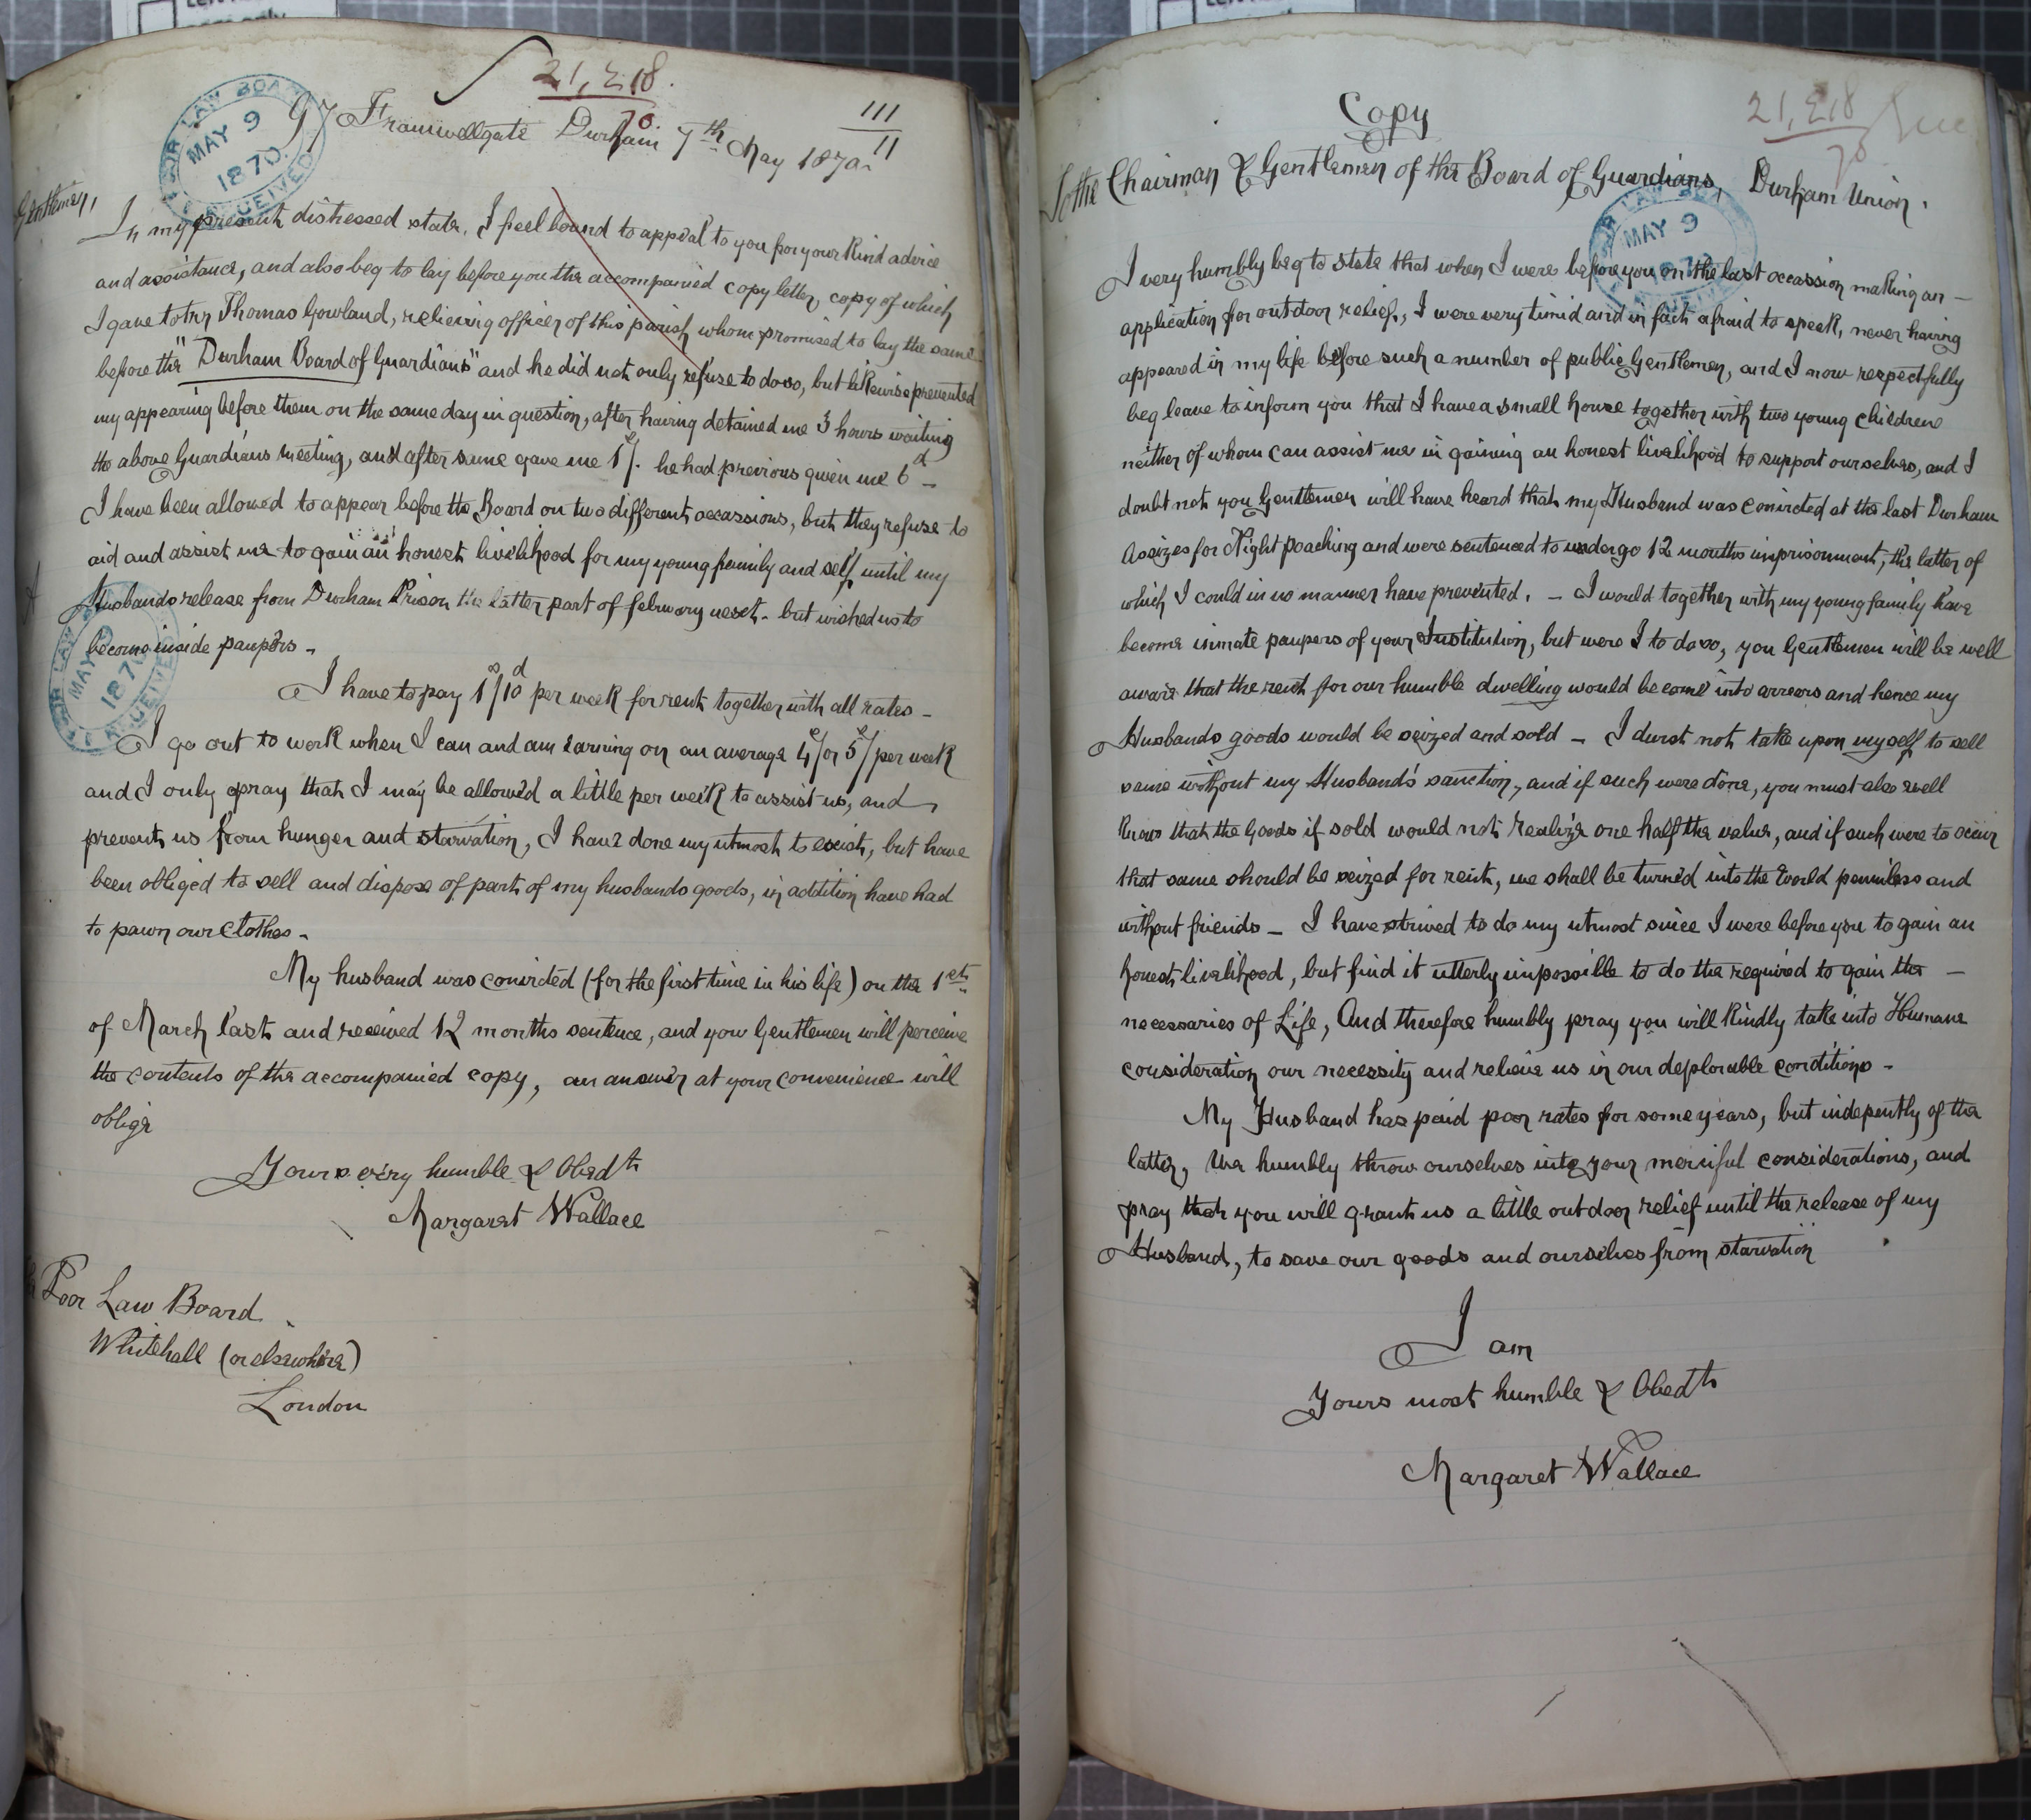 21,218.
70.
111
11
POOR LAW BOARD
MAY 9
1870
RECEIVED
97 Framwellgate Durham 7th May 1870.
Gentlemen,
In my present distressed state, I feel bound to appeal to you for your kind advice
and assistance, and also beg to lay before you the accompanied copy letter, copy of which
I gave to Mr Thomas Gowland, relieving officer of this parish whom promised to lay the same
before the "Durham Board of Guardians" and he did not only refuse to do so, but likewise prevented
my appearing before them on the same day in question, after having detained me 3 hours waiting
the above Guardians meeting, and after same gave me 1s/. he had previous given me 6d –
I have been allowed to appear before the Board on two different occassions, but they refuse to
aid and assist me to gain an honest livelihood for my young family and self, until my
Husbands release from Durham Prison the latter part of february next. but wished us to
become inside paupers –
POOR LAW BOARD
MAY 9
1870
RECEIVED
I have to pay 1s/10d per week for rent together with all rates –
I go out to work when I can and am earning on an average 4s/ or 5s/ per week
and I only pray that I may be allowed a little per week to assist us, and
prevent us from hunger and starvation, I have done my utmost to exist, but have
been obliged to sell and dispose of part of my husbands goods, in addition have had
to pawn our Clothes –
My husband was convicted (for the first time in his life) on the 1st
of March last and received 12 months sentence, and you Gentlemen will perceive
the contents of the accompanied copy, an answer at your convenience will
oblige
Yours very humble & Obedt
Margaret Wallace
Poor Law Board
Whitehall (or elsewhere)
London
Copy
21,218
70
To the Chairman & Gentlemen of the Board of Guardians, Durham Union.
MAY 9
I very humbly beg to state that when I were before you on the last occassion making an –
application for outdoor relief, I were very timid and in fact afraid to speak, never having
appeared in my life before such a number of public Gentlemen, and I now respectfully
beg leave to inform you that I have a small house together with two young children
neither of whom can assist me in gaining an honest livelihood to support ourselves, and I
doubt not you Gentlemen will have heard that my Husband was convicted at the last Durham
Assizes for Night poaching and were sentenced to undergo 12 months imprisonment, the latter of
which I could in no manner have prevented. – I would together with my young family have
become inmate paupers of your Institution, but were I to do so, you Gentlemen will be well
aware that the rent for our humble dwelling would become into arrears and hence my
Husbands goods would be seized and sold – I durst not take upon myself to sell
same without my Husband's sanction, and if such were done, you must also well
know that the Goods if sold would not realize one half the value, and if such were to occur
that same should be seized for rent, we shall be turned into the world penniless and
without friends – I have strived to do my utmost since I were before you to gain an
honest livelihood, but find it utterly impossible to do the required to gain the –
necessaries of Life, And therefore humbly pray you will kindly take into Humane
consideration our necessity and relieve us in our deplorable conditions –
My Husband has paid poor rates for some years, but indepently of the
latter, We humbly throw ourselves into your merciful considerations, and
pray that you will grant us a little outdoor relief until the release of my
Husband, to save our goods and ourselves from starvation
I am
Yours most humble & Obedt
Margaret Wallace